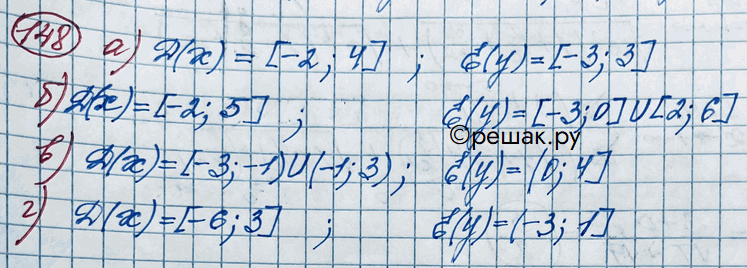 148 а) D(x) = [-2; 4] ; E(y) = [-3; 3]
б) D(x) = [-2; 5] ; E(y) = [-3; 0] U [2; 6]
©решак.ру
в) D(x) = [-3; -1) U (-1; 3) ; E(y) = (0; 4]
г) D(x) = [-6; 3] ; E(y) = (-3; 1]